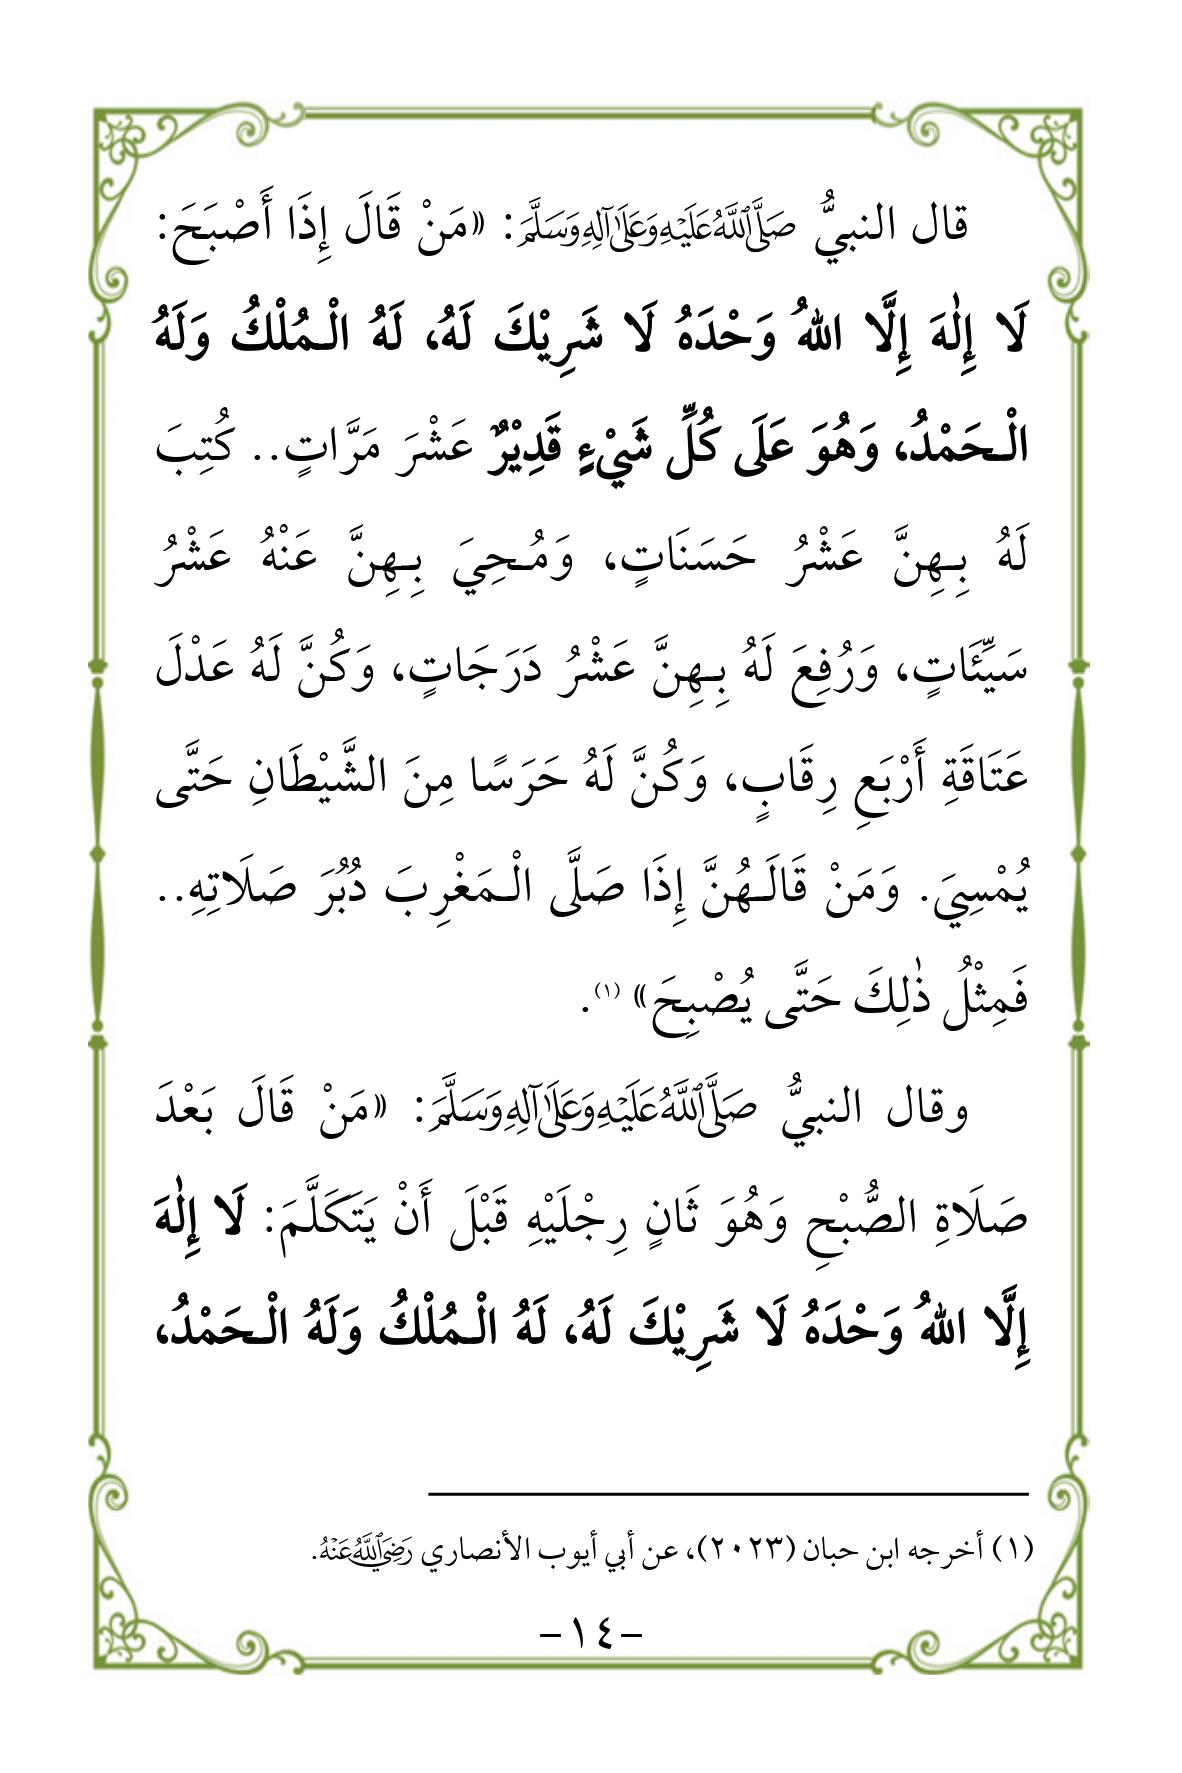 قال النبيُّ صَلَّى اللَّهُ عَلَيْهِ وَعَلَىٰ آلِهِ وَسَلَّمَ: «مَنْ قَالَ إِذَا أَصْبَحَ:
لَا إِلٰهَ إِلَّا اللهُ وَحْدَهُ لَا شَرِيْكَ لَهُ، لَهُ الْـمُلْكُ وَلَهُ
الْـحَمْدُ، وَهُوَ عَلَى كُلِّ شَيْءٍ قَدِيْرٌ عَشْرَ مَرَّاتٍ.. كُتِبَ
لَهُ بِـهِنَّ عَشْرُ حَسَنَاتٍ، وَمُـحِيَ بِـهِنَّ عَنْهُ عَشْرُ
سَيِّئَاتٍ، وَرُفِعَ لَهُ بِـهِنَّ عَشْرُ دَرَجَاتٍ، وَكُنَّ لَهُ عَدْلَ
عَتَاقَةِ أَرْبَعِ رِقَابٍ، وَكُنَّ لَهُ حَرَسًا مِنَ الشَّيْطَانِ حَتَّى
يُمْسِيَ. وَمَنْ قَالَـهُنَّ إِذَا صَلَّى الْـمَغْرِبَ دُبُرَ صَلَاتِهِ..
فَمِثْلُ ذٰلِكَ حَتَّى يُصْبِحَ» (١).
وقال النبيُّ صَلَّى اللَّهُ عَلَيْهِ وَعَلَىٰ آلِهِ وَسَلَّمَ: «مَنْ قَالَ بَعْدَ
صَلَاةِ الصُّبْحِ وَهُوَ ثَانٍ رِجْلَيْهِ قَبْلَ أَنْ يَتَكَلَّمَ: لَا إِلٰهَ
إِلَّا اللهُ وَحْدَهُ لَا شَرِيْكَ لَهُ، لَهُ الْـمُلْكُ وَلَهُ الْـحَمْدُ،
(١) أخرجه ابن حبان (٢٠٢٣)، عن أبي أيوب الأنصاري رَضِيَ اللَّهُ عَنْهُ.
–١٤–